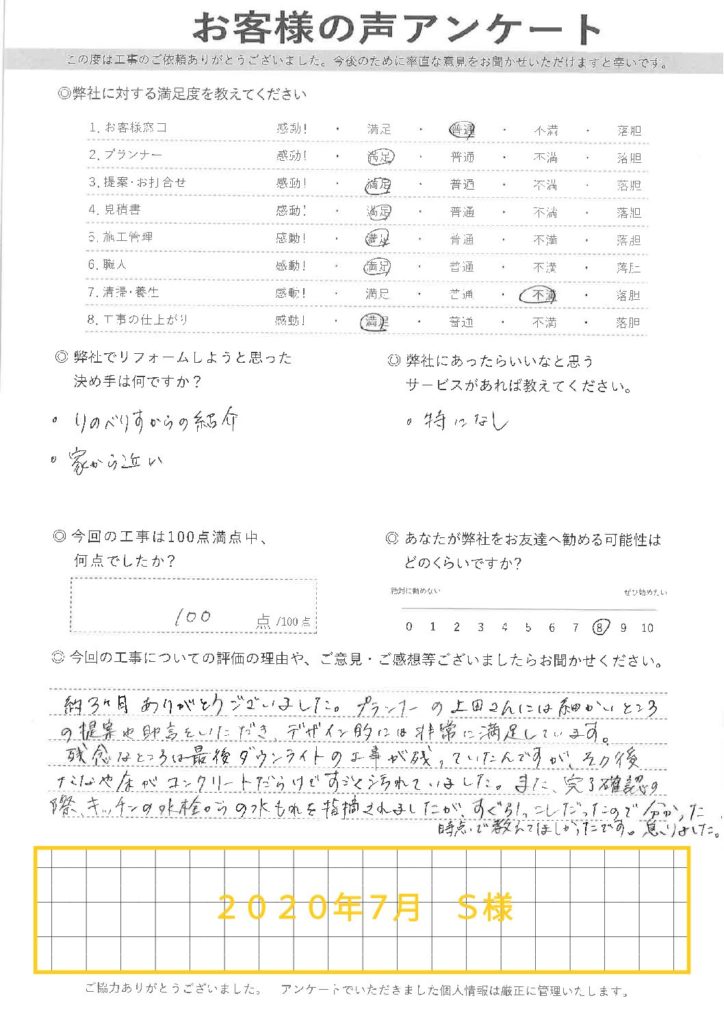 お客様の声アンケート
この度は工事のご依頼ありがとうございました。今後のために率直な意見をお聞かせいただけますと幸いです。
◎弊社に対する満足度を教えてください
1.お客様窓口 感動! ・ 満足 ・ 普通 ・ 不満 ・ 落胆
2.プランナー 感動! ・ 満足 ・ 普通 ・ 不満 ・ 落胆
3.提案・お打合せ 感動! ・ 満足 ・ 普通 ・ 不満 ・ 落胆
4.見積書 感動! ・ 満足 ・ 普通 ・ 不満 ・ 落胆
5.施工管理 感動! ・ 満足 ・ 普通 ・ 不満 ・ 落胆
6.職人 感動! ・ 満足 ・ 普通 ・ 不満 ・ 落胆
7.清掃・養生 感動! ・ 満足 ・ 普通 ・ 不満 ・ 落胆
8.工事の仕上がり 感動! ・ 満足 ・ 普通 ・ 不満 ・ 落胆
◎弊社でリフォームしようと思った
決め手は何ですか?
・りのべりすからの紹介
・家から近い
◎弊社にあったらいいなと思う
サービスがあれば教えてください。
・特になし
◎今回の工事は100点満点中、
何点でしたか?
100 点 /100点
◎あなたが弊社をお友達へ勧める可能性は
どのくらいですか?
絶対に勧めない ぜひ勧めたい
0 1 2 3 4 5 6 7 8 9 10
◎今回の工事についての評価の理由や、ご意見・ご感想等ございましたらお聞かせください。
約3ヶ月ありがとうございました。プランナーの上田さんには細かいところ
の提案や助言をいただき、デザイン的には非常に満足しています。
残念なところは最後ダウンライトの工事が残っていたんですが、その後
たなや床がコンクリートだらけですごく汚れていました。また、完了確認の
際、キッチンの水栓からの水もれを指摘されましたが、すぐ引っこしだったので分かった
時点で教えてほしかったです。怒りました。
2020年7月 S様
ご協力ありがとうございました。 アンケートでいただきました個人情報は厳正に管理いたします。